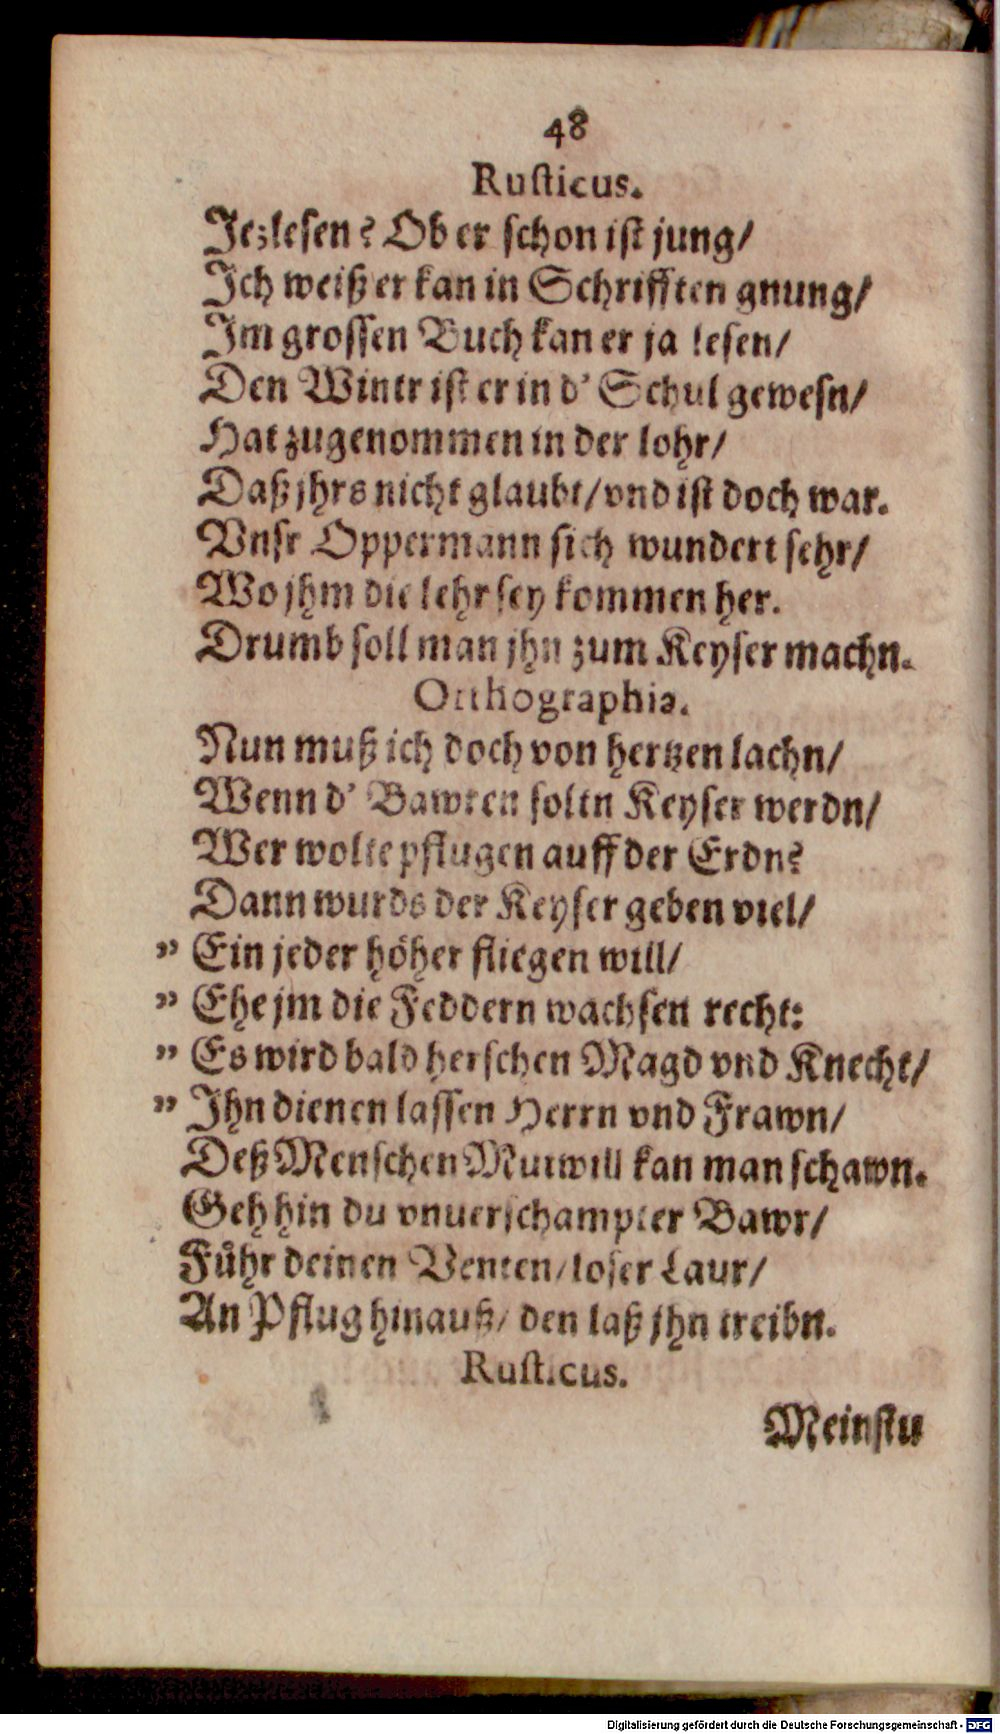 48
Rusticus.
Jezlesen? Ob er schon ist jung/
Jch weiß er kan in Schrifften gnung/
Jm grossen Buch kan er ja lesen/
Den Wintr ist er in d' Schul gewesn/
Hat zugenommen in der lohr/
Daß jhrs nicht glaubt/ vnd ist doch war.
Vnsr Oppermann sich wundert sehr/
Wo jhm die lehr sey kommen her.
Drumb soll man jhn zum Keyser machn.
Orthographia.
Nun muß ich doch von hertzen lachn/
Wenn d' Bawren soltn Keyser werdn/
Wer wolte pflugen auff der Erdn?
Dann wurds der Keyser geben viel/
” Ein jeder höher fliegen will/
” Ehe jm die Feddern wachsen recht:
” Es wird bald herschen Magd vnd Knecht/
” Jhn dienen lassen Herrn vnd Frawn/
Deß Menschen Mutwill kan man schawn.
Geh hin du vnuerschampter Bawr/
Fůhr deinen Venten/ loser Laur/
An Pflug hinauß/ den laß jhn treibn.
Rusticus.
Meinstu
Digitalisierung gefördert durch die Deutsche Forschungsgemeinschaft - DFG